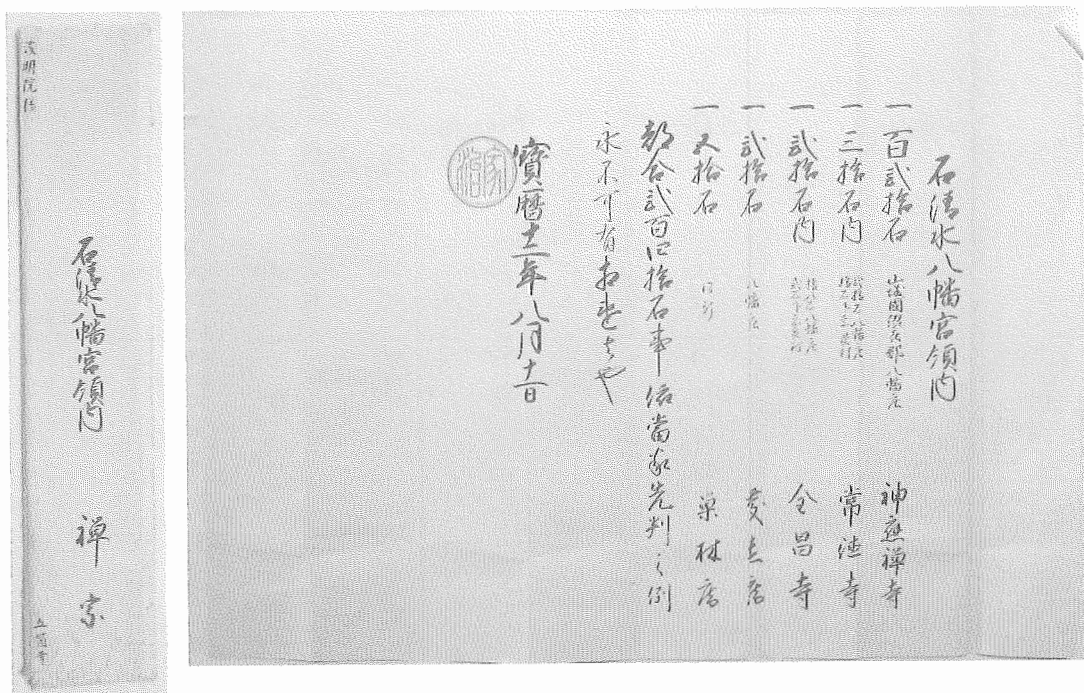 石清水八幡宮領内
一百貳拾石 山城國綴喜郡八幡庄 神應禅寺
一三拾石内 常徳寺
一貳拾石内 全昌寺
一貳拾石 八幡庄 庵
一五拾石 同所 巣林庵
都合貳百四拾石事依當家先判之例
永不可有相違者也
寶暦十二年八月十一日
家治
浚明院様
石清水八幡宮領内 禅宗
五箇寺